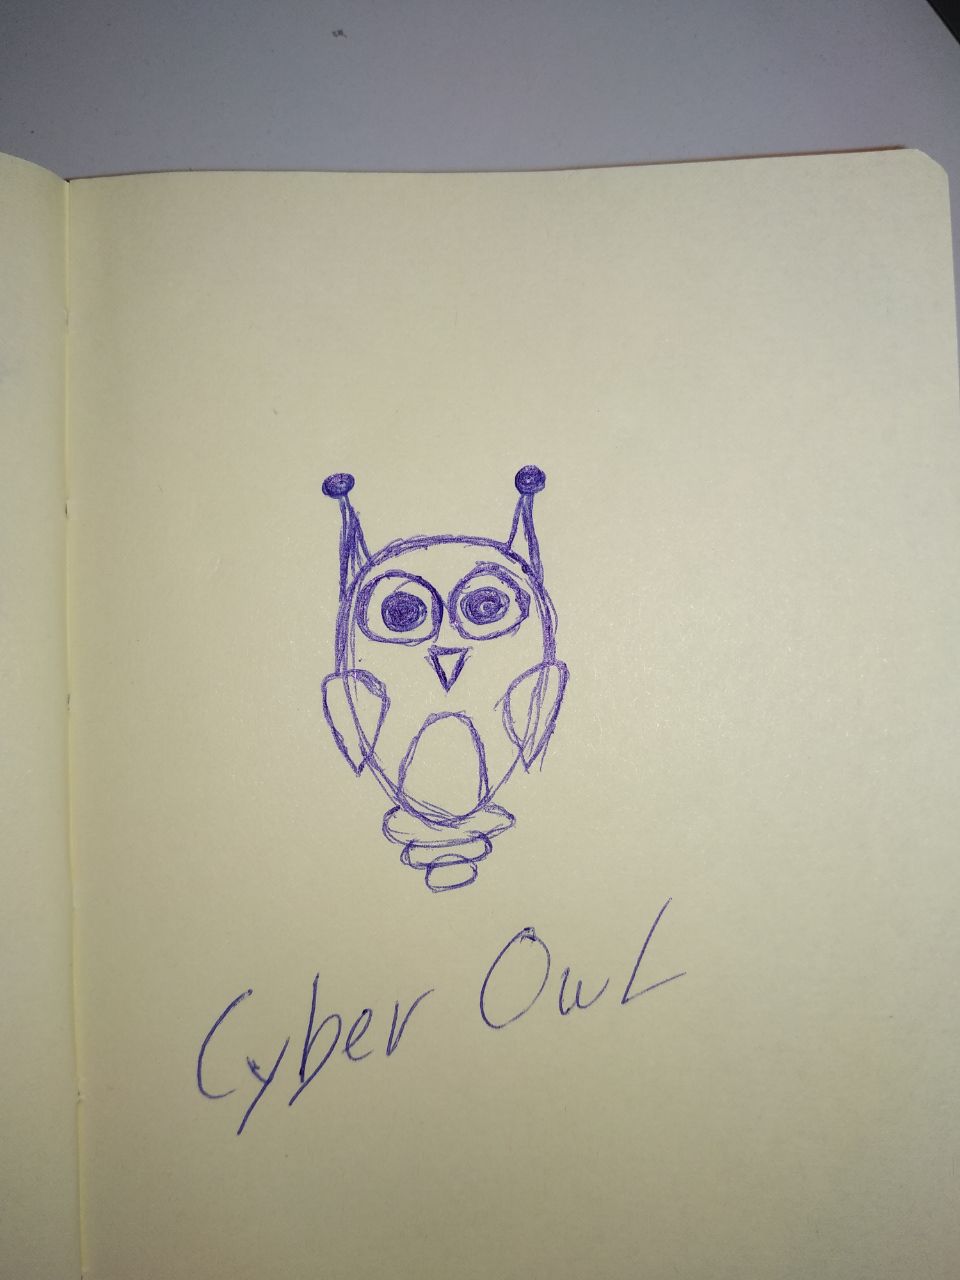 Cyber Owl